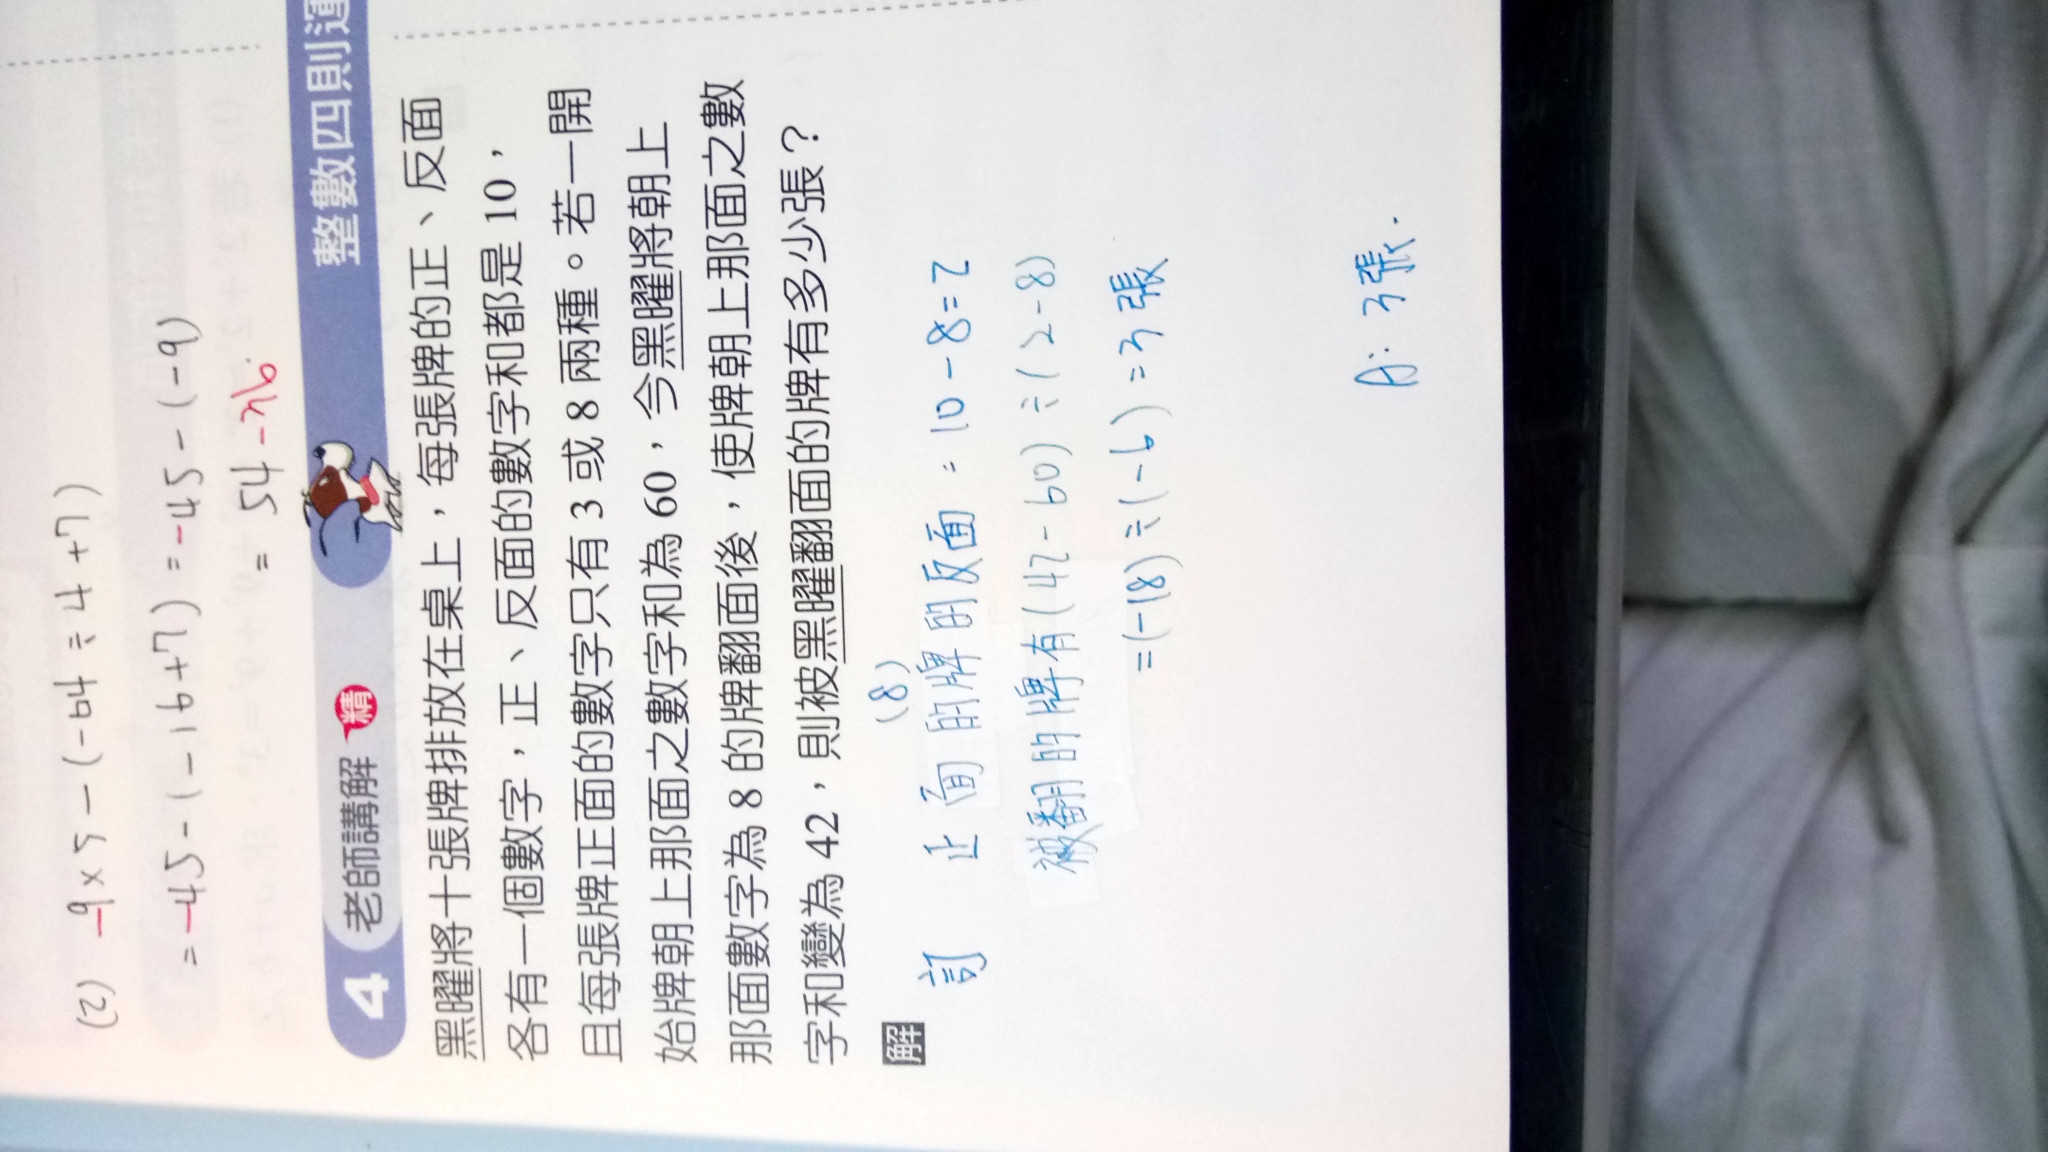 (2) -9×5-(-64÷4+7)
=-45-(-16+7)=-45-(-9)
=54-36.
4 老師講解 精 整數四則運
黑曜將十張牌排放在桌上，每張牌的正、反面
各有一個數字，正、反面的數字和都是 10，
且每張牌正面的數字只有 3 或 8 兩種。若一開
始牌朝上那面之數字和為 60，今黑曜將朝上
那面數字為 8 的牌翻面後，使牌朝上那面之數
字和變為 42，則被黑曜翻面的牌有多少張？
解
(8)
正面的牌的反面=10-8=2
被翻的牌有(42-60)÷(2-8)
=(-18)÷(-6)=3張
A:3張.